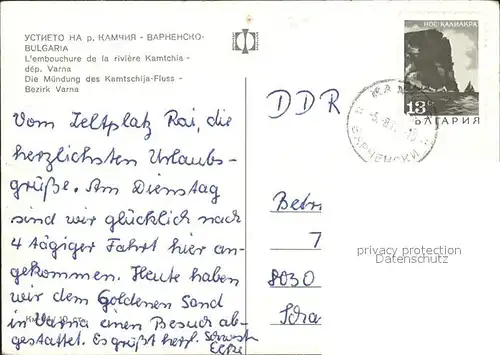 УСТИЕТО НА р. КАМЧИЯ - ВАРНЕНСКО-
BULGARIA
L'embouchure de la rivière Kamtchia -
dép. Varna
Die Mündung des Kamtschija-Fluss -
Bezirk Varna
НОС КАЛИАКРА
13
БЪЛГАРИЯ
ВАРНЕНСКИ
DDR
Vom Zeltplatz Rai, die
herzlichsten Urlaubs-
grüße. Am Dienstag
sind wir glücklich nach
4 tägiger Fahrt hier an-
gekommen. Heute haben
wir dem Goldenen Sand
in Varna einen Besuch ab-
gestattet. Es grüßt herzl.
Betri
7
8030
privacy protection
Datenschutz